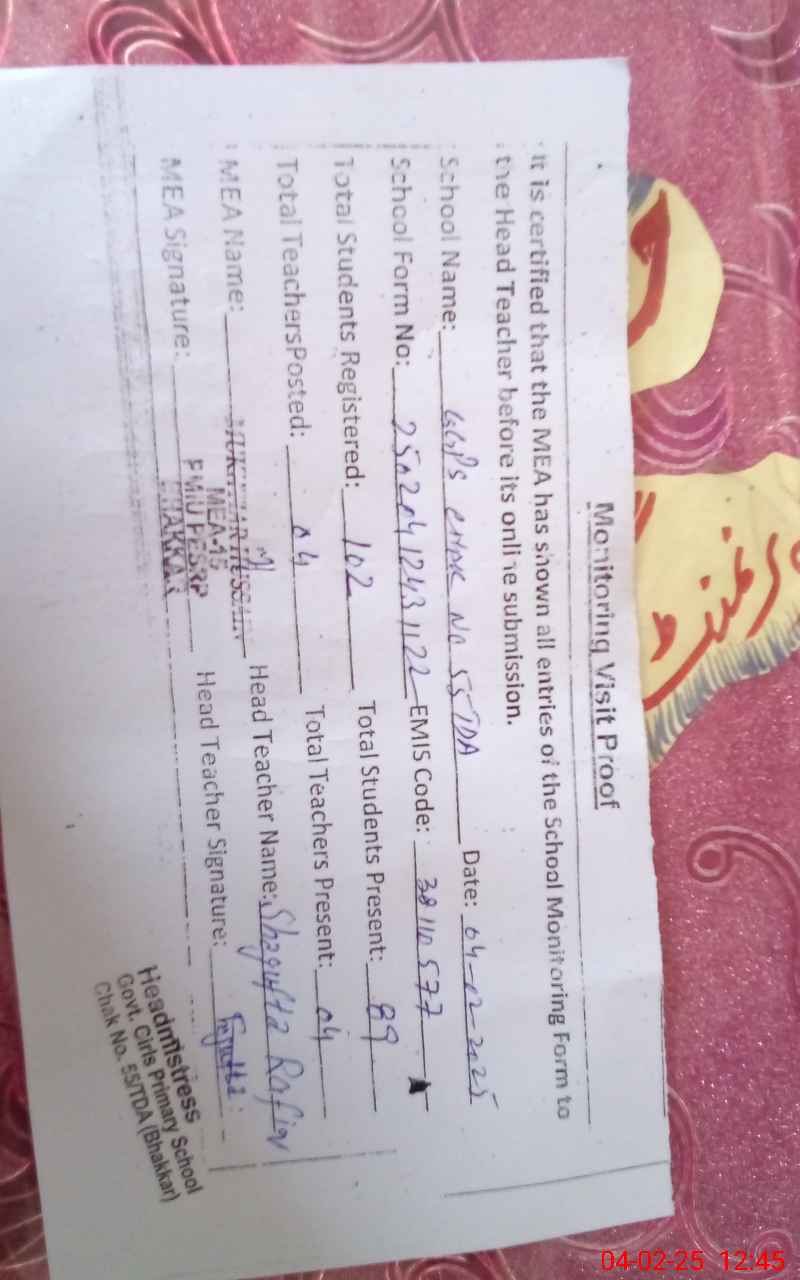 Monitoring Visit Proof
It is certified that the MEA has shown all entries of the School Monitoring Form to
the Head Teacher before its online submission.
School Name: GGPS CHAK No 55 TDA Date: 04-02-2025
School Form No: EMIS Code: 38110577
Total Students Registered: 102 Total Students Present: 89
Total Teachers Posted: 04 Total Teachers Present: 04
MEA Name: Head Teacher Name: Shagufta Rafiq
MEA-15
MEA Signature: PMIU PESRP Head Teacher Signature:
BHAKKAR
Headmistress
Govt. Girls Primary School
Chak No. 55/TDA (Bhakkar)
04-02-25 12:45